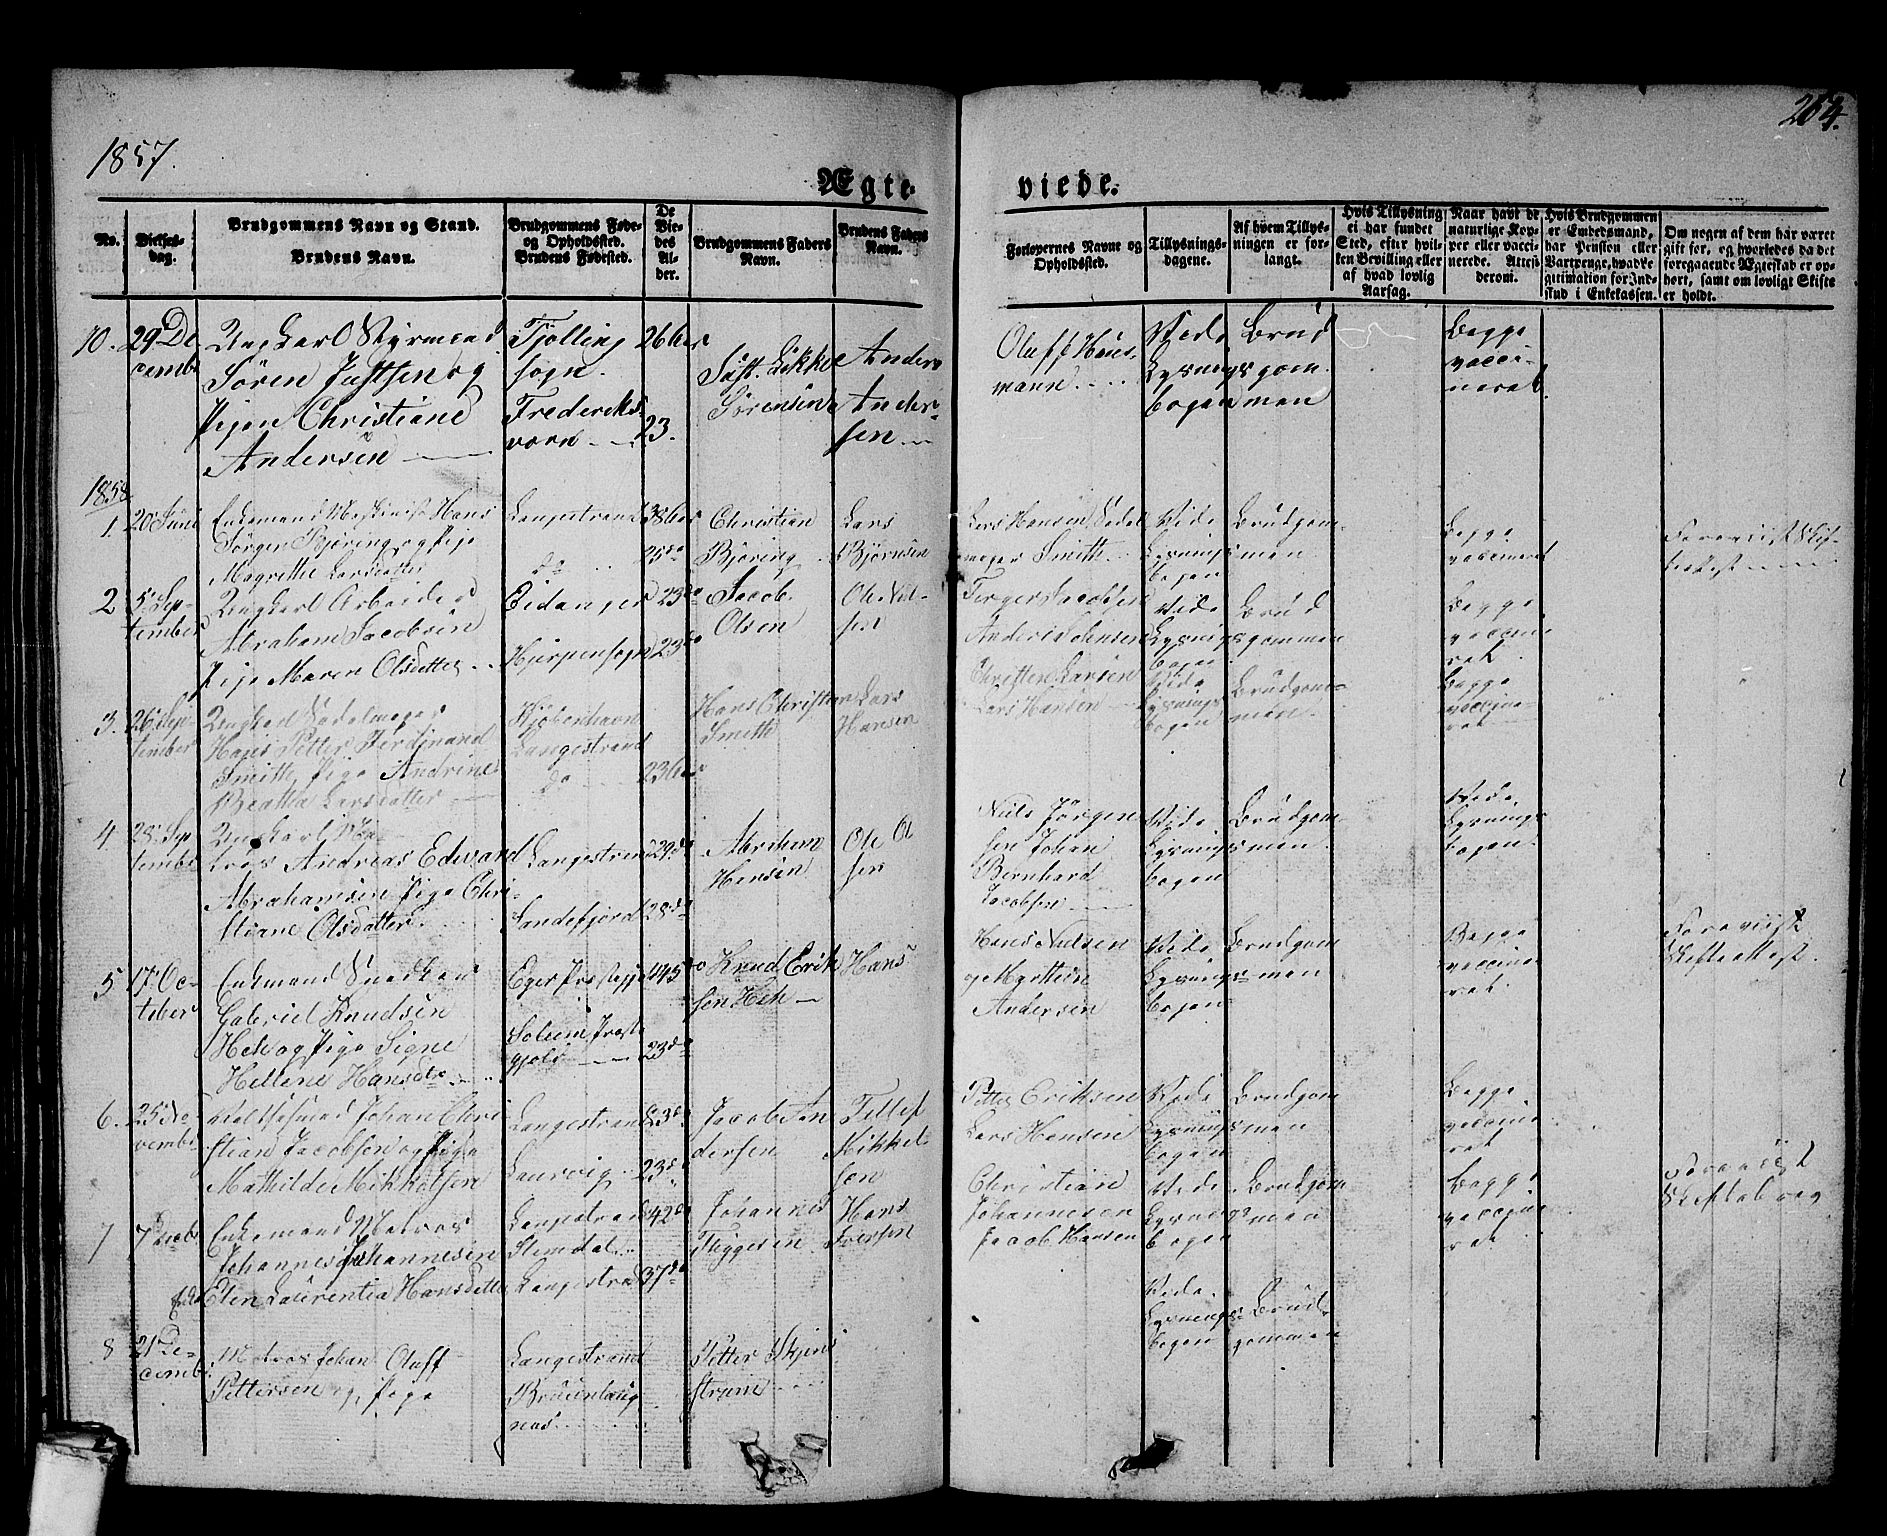 1857.
264.
Ægte-
viede.
No.
Vielses-
dag.
Brudgommens Navn og Stand.
Brudens Navn.
Brudgommens Føde-
og Opholdssted.
Brudens Fødested.
De
Vie-
des
Al-
der.
Brudgommens Faders
Navn.
Brudens Faders
Navn.
Forlovernes Navne og
Opholdssted.
Tillysnings-
dagene.
Af hvem Tillys-
ningen er for-
langt.
Hvis Tillysning
ei har fundet
Sted, efter hvil-
ken Bevilling eller
af hvad lovlig
Aarsag.
Naar havt de
naturlige Kop-
per eller vacci-
nerede. Attest
derom.
Hvis Brudgommen
er Embedsmand,
har Pension eller
Vartpenge, hvad Le-
gitimation for Ind-
skud i Enkekassen.
Om nogen af dem har været
gift før, og hvorledes da det
foregaaende Ægteskab er op-
hørt, samt om lovligt Skifte
er holdt.
10.
29 De
cembr
Ungkarl Styrmand
Søren Justsen og
Pigen Christiane
Andersen
Tjølling
sogn.
Frederiks
værn
26 Aar
23.
Just. Løkke
Sørensen
Anders
Ander-
sen
Oluff Haus-
mann
Vide
Lysnings
bogen
Brud
gom
men
Begge
vacci-
neret
1858
1.
20 Juni
Enkemand Maskinist Hans
Jørgen Bjøring, og Pige
Magrethe Larsdatter
Langestrand
do
38 Aar
25 do
Christian
Bjøring
Lars
Bjørnsen
Lars Hansen Sadel
mager Smith
Vide
Lysnings
bogen
Brudgom-
men
Begge
vaccineret
Forevist Skif-
teattest
2
5 Sep-
tember
Ungkarl Arbeider
Abraham Jacobsen
Pige Maren Olsdatter
Eidanger
Hjerpensogn
23 do
23 do
Jacob
Olsen
Ole Niel-
sen
Jørger Jacobsen
Anders Jensen
Vide
Lysnings
bogen
Brud
gommen
Begge
vaccine
ret
3.
26 Sep-
tember
Ungkarl Sadelmager
Hans Petter Ferdinand
Smith, Pige Andrine
Beatha Larsdatter
Kjøbenhavn
Langestrand
do
23 Aar
Hans Christian
Smith
Lars
Hansen
Christen Larsen
Lars Hansen
Vide
Lysnings
bogen
Brudgom-
men
Begge
vaccine
ret
4
28 Sep
tember
Ungkarl Ma-
tros Andreas Edvard
Abrahamsen Pige Chri-
stiane Olsdatter
Langestrand
Sandefjord
29 do
28 do
Abraham
Hansen
Ole Ol
sen
Niels Jørgen
sen Johan
Bernhard
Jacobsen
Vide
Lysnings
bogen
Brudgom-
men
Vide
Lysnings
bogen
5
17 Oc-
tober
Enkemand Snedker
Gabriel Knudsen
Hek og Pige Signe
Hellene Hansdtr
Eger Præstegj
Solum Præste
gjeld
45 do
23 do
Knud Erik
sen Hek
Hans
Hans Nielsen
og Mathias
Andersen
Vide
Lysnings
bogen
Brudgom
men
Begge
vaccine
ret
Forevist
Skifteattest
6.
25 No-
vembr
Johan Chri
stian Jacobsen og Pige
Mathilde Mikkelsen
Langestrand
Laurvig
23 do
23 do
Jacob An
dersen
Tellef
Mikkel
sen
Petter Eriksen
Lars Hansen
Vide
Lysnings
bogen
Brudgom
men
Begge
vaccine
ret
7
7 Decbr
Enkemand Matros
Johannes Johannesen
Enke Elen Laurentia Hansdatter
Langestrand
Slemdal
Langestrand
42 do
37 do
Johannes
Tryggesen
Hans
Iversen
Christian
Johannesen
Jacob Hansen
Vide
Lysnings
bogen
Brudgom
men
Begge
vaccine
ret
Forevist
Skiftebrev
8
21 De-
cembr
Matros Johan Oluff
Pettersen og Pige
Langestrand
Brunlaug
næs
Petter Skjens
strøm
Vide
Lysnings
bogen
Brud
gommen